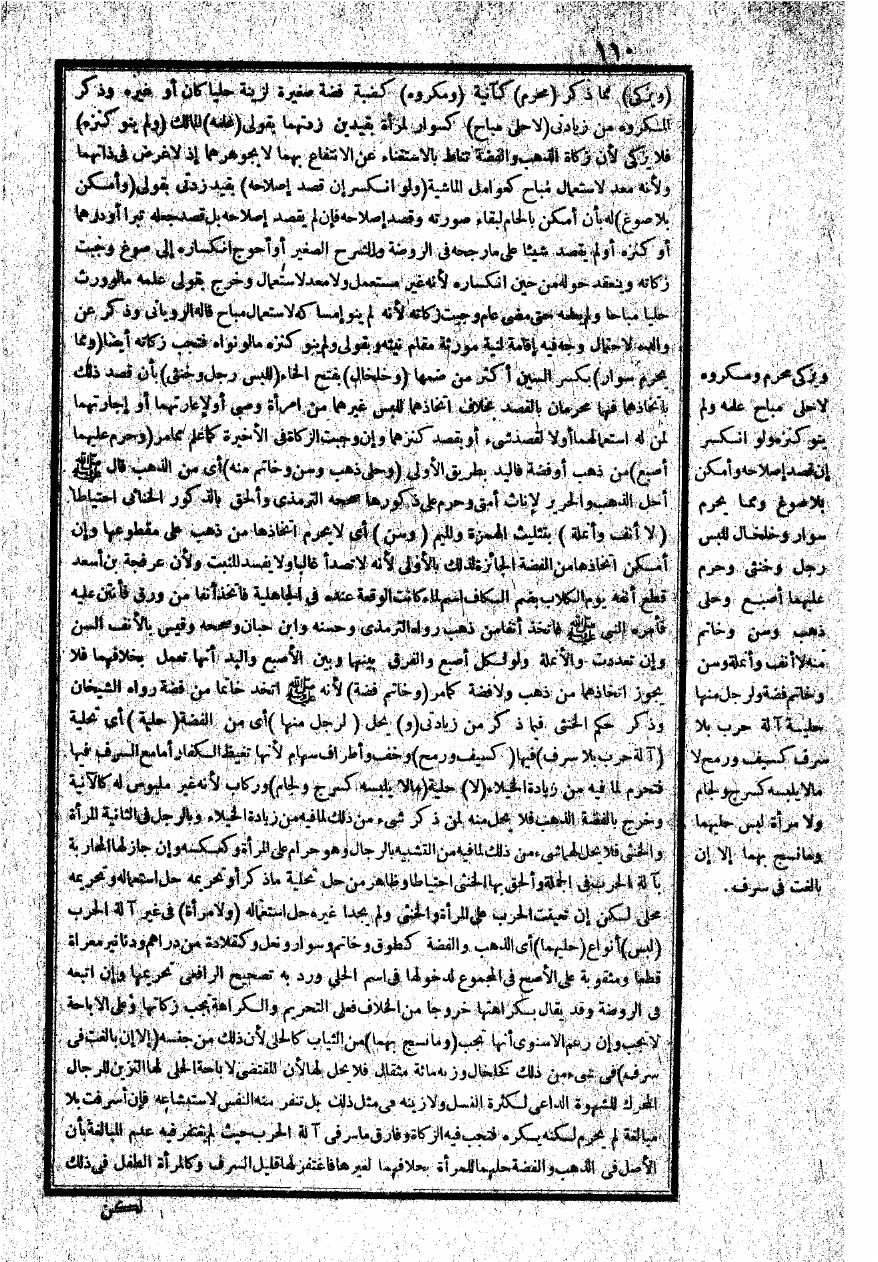 ١١٠
(ويزكى) مما ذكر (محرم) كآنية (ومكروه) كضبة فضة صغيرة لزينة حليا كان أو غيره وذكر
المكروه من زيادتى (لا حلى مباح) كسوار لمرأة بقيدين زدتهما بقولى (علمه) المالك (ولم ينو كنزه)
فلا يزكى لأن زكاة الذهب والفضة تناط بالاستغناء عن الانتفاع بهما لا بجوهرهما إذ لا غرض فى ذاتهما
ولأنه معد لاستعمال مباح كعوامل الماشية (ولو انكسر إن قصد إصلاحه) بقيد زدتى بقولى (وأمكن
بلا صوغ) له بأن أمكن بالحام لبقاء صورته وقصد إصلاحه فإن لم يقصد إصلاحه بل قصد جعله تبرا أو دراهم
أو كنزه أو لم يقصد شيئا على ما رجحه فى الروضة والشرح الصغير أو أحوج انكساره إلى صوغ وجبت
زكاته وينعقد حوله من حين انكساره لأنه غير مستعمل ولا معد لاستعمال وخرج بقولى علمه ما لو ورث
حليا مباحا ولم يعلمه حتى مضى عام وجبت زكاته لأنه لم ينو إمساكه لاستعمال مباح قاله الرويانى وذكر عن
والده احتمال وجه فيه إقامة لنية مورثه مقام نيته وبقولى ولم ينو كنزه ما لو نواه فتجب زكاته أيضا (ومما
يحرم سوار) بكسر السين أكثر من ضمها (وخلخال) بفتح الخاء (للبس رجل وخنثى) بأن قصد ذلك
باتخاذهما فهما محرمان بالقصد بخلاف اتخاذهما للبس غيرهما من امرأة وصبى أو لإعارتهما أو إجارتهما
لمن له استعمالهما أو لا لقصد شىء أو بقصد كنزهما وإن وجبت الزكاة فى الأخيرة كما علم مما مر (وحرم عليهما
أصبع) من ذهب أو فضة فاليد بطريق الأولى (وحلى ذهب وسن وخاتم منه) أى من الذهب قال ﷺ
أحل الذهب والحرير لإناث أمتى وحرم على ذكورها صححه الترمذى وألحق بالذكور الخناثى احتياطا
(لا أنف وأنملة) بتثليث الهمزة والميم (وسن) أى لا يحرم اتخاذها من ذهب على مقطوعها وإن
أمكن اتخاذها من الفضة الجائزة لذلك بالأولى لأنه لا تصدأ غالبا ولا يفسد المنبت ولأن عرفجة بن أسعد
قطع أنفه يوم الكلاب بضم الكاف اسم لماء كانت الوقعة عنده فى الجاهلية فاتخذ أنفا من ورق فأنتن عليه
فأمره النبى ﷺ فاتخذ أنفا من ذهب رواه الترمذى وحسنه وابن حبان وصححه وقيس بالأنف السن
وإن تعددت والأنملة ولو لكل أصبع والفرق بينها وبين الأصبع واليد أنها تعمل بخلافهما فلا
يجوز اتخاذهما من ذهب ولا فضة كما مر (وخاتم فضة) لأنه ﷺ اتخذ خاتما من فضة رواه الشيخان
وذكر حكم الخنثى فيما ذكر من زيادتى (و) يحل (لرجل منها) أى من الفضة (حلية) أى تحلية
(آلة حرب بلا سرف) فيها (كسيف ورمح) وخف وأطراف سهام لأنها تغيظ الكفار أما مع السرف فيها
فتحرم لما فيه من زيادة الخيلاء (لا) حلية (ما لا يلبسه كسرج ولجام) وركاب لأنه غير ملبوس له كالآنية
وخرج بالفضة الذهب فلا يحل منه لمن ذكر شىء من ذلك لما فيه من زيادة الخيلاء وبالرجل فى الثانية المرأة
والخنثى فلا يحل لهما شىء من ذلك لما فيه من التشبه بالرجال وهو حرام على المرأة وكعكسه وإن جاز لها المحاربة
بآلة الحرب فى الجملة وألحق بها الخنثى احتياطا وظاهر من حل تحلية ما ذكر أو تحريمه حل استعماله وتحريمه
محلى لكن إن تعينت الحرب على المرأة والخنثى ولم يجدا غيره حل استعماله (ولامرأة) فى غير آلة الحرب
(لبس) أنواع (حليهما) أى الذهب والفضة كطوق وخاتم وسوار ونعل وكقلادة من دراهم ودنانير معراة
قطعا ومثقوبة على الأصح فى المجموع لدخولها فى اسم الحلي ورد به تصحيح الرافعى تحريمها وإن اتبعه
فى الروضة وقد يقال بكراهتها خروجا من الخلاف فعلى التحريم والكراهة تجب زكاتها وعلى الاباحة
لا تجب وإن زعم الاسنوى أنها تجب (وما نسج بهما) من الثياب كالحلى لأن ذلك من جنسه (إلا إن بالغت فى
سرف) فى شىء من ذلك كخلخال وزنه مائة مثقال فلا يحل لها لأن المقتضى لاباحة الحلى لها التزين للرجال
المحرك للشهوة الداعى لكثرة النسل ولا زينة فى مثل ذلك بل تنفر منه النفس لاستبشاعه فإن أسرفت بلا
مبالغة لم يحرم لكنه يكره فتجب فيه الزكاة وفارق ما مر فى آلة الحرب حيث لم يغتفر فيه عدم المبالغة بأن
الأصل فى الذهب والفضة حلهما للمرأة بخلافهما لغيرها فاغتفر لها قليل السرف وكالمرأة الطفل فى ذلك
لكن
ويزكى محرم ومكروه
لا حلى مباح علمه ولم
ينو كنزه ولو انكسر
إن قصد إصلاحه وأمكن
بلا صوغ ومما يحرم
سوار وخلخال للبس
رجل وخنثى وحرم
عليهما أصبع وحلى
ذهب وسن وخاتم
منه لا أنف وأنملة وسن
وخاتم فضة ولرجل منها
حلية آلة حرب بلا
سرف كسيف ورمح لا
ما لا يلبسه كسرج ولجام
ولامرأة لبس حليهما
وما نسج بهما إلا إن
بالغت فى سرف.